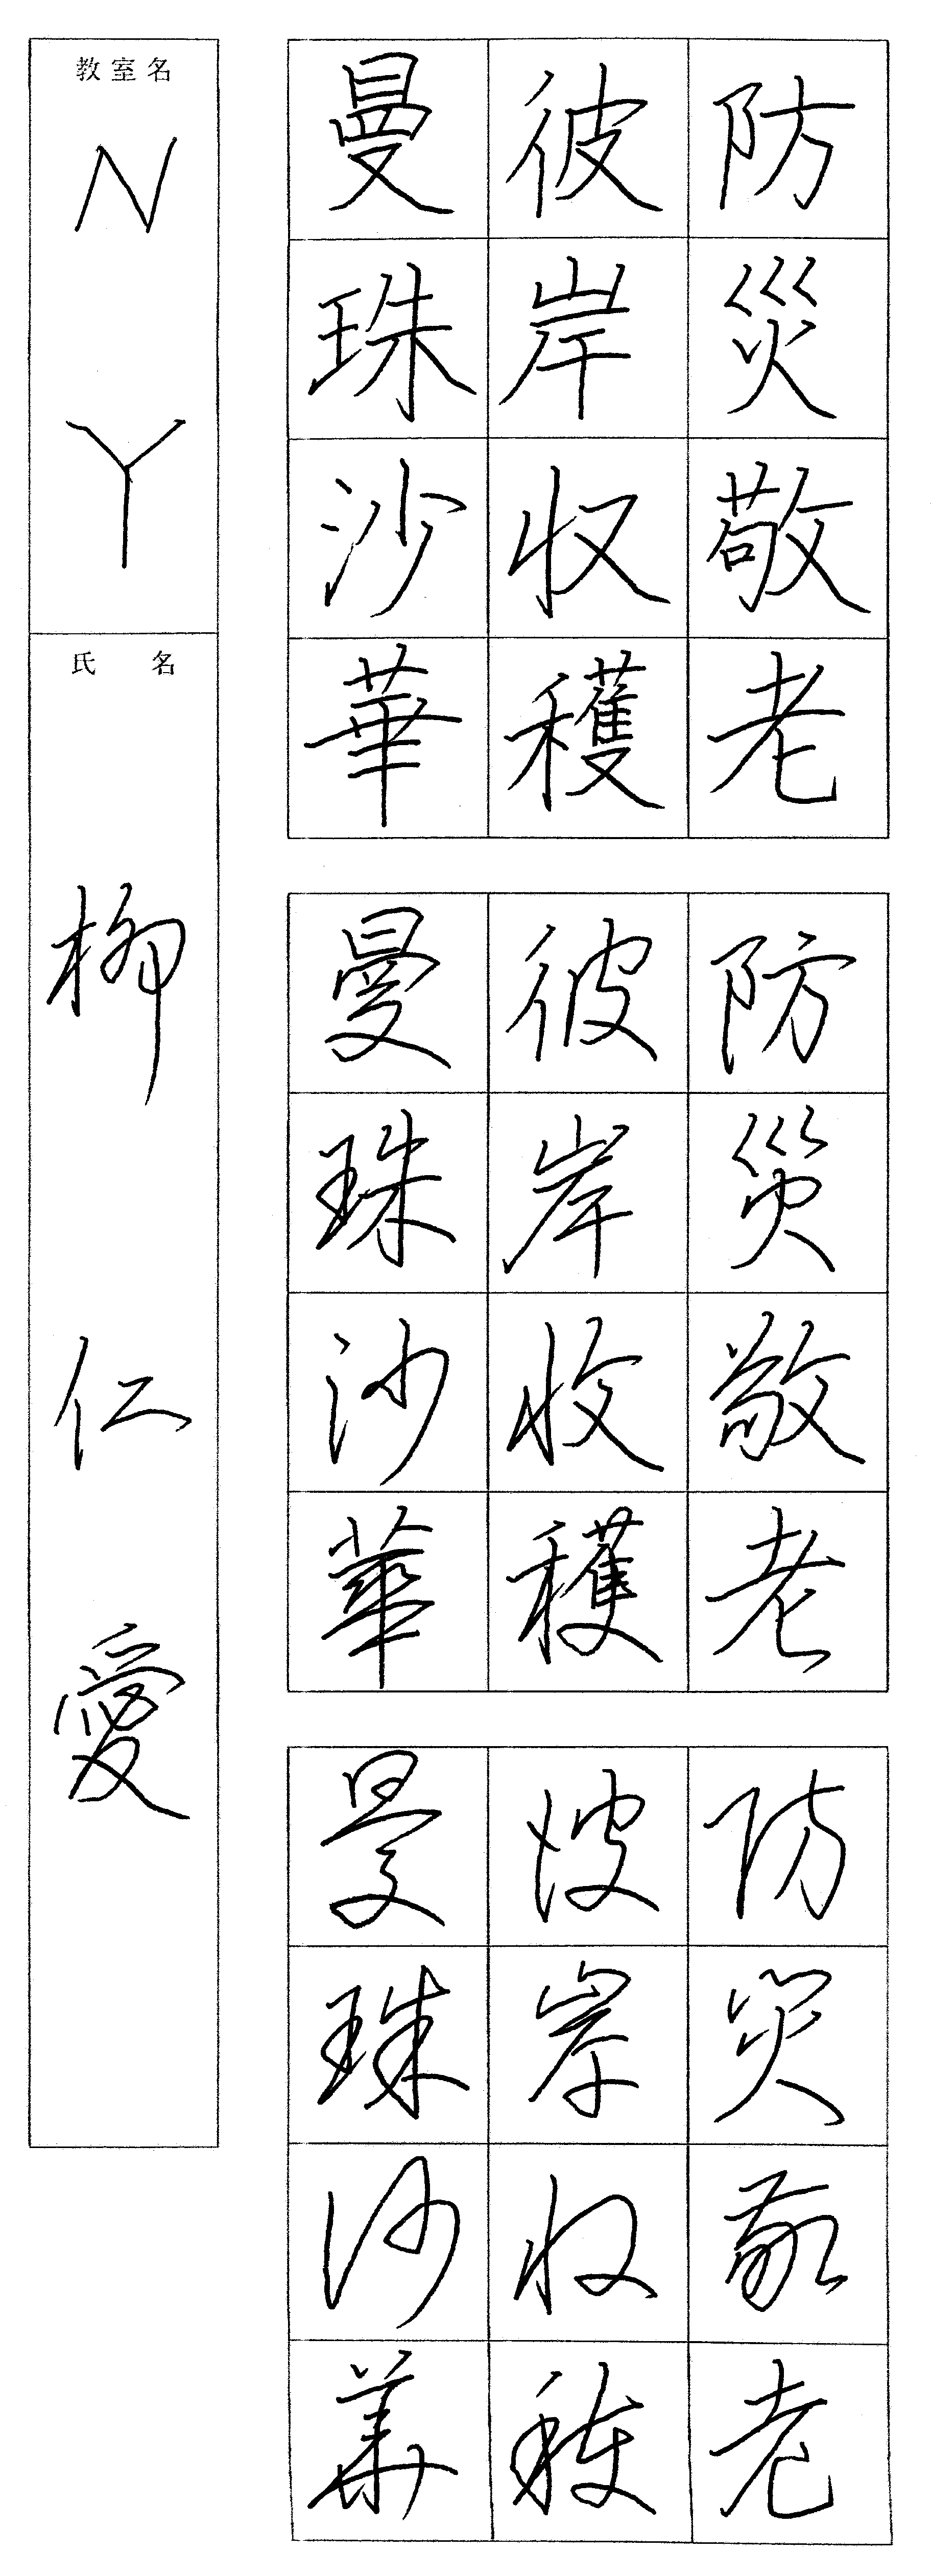 防災敬老
彼岸収穫
曼珠沙華
防災敬老
彼岸収穫
曼珠沙華
防災敬老
彼岸収穫
曼珠沙華
教室名
NY
氏名
柳仁愛